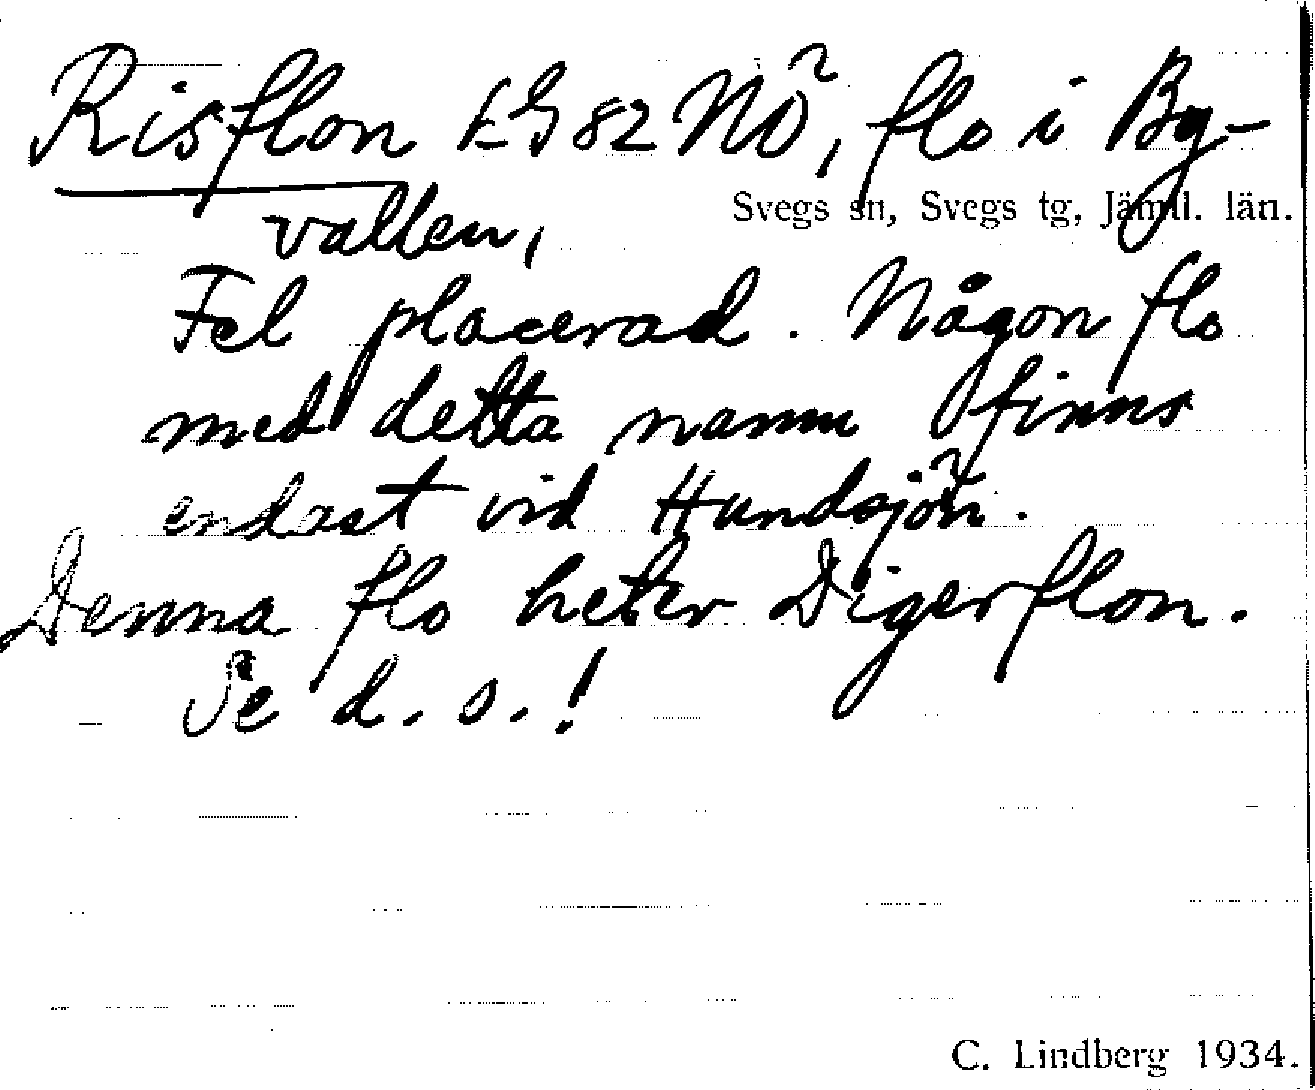 Risflon EG 82 NÖ, flo i By-
Svegs sn, Svegs tg, Jämtl. län.
vallen,
Fel placerad. Någon flo
med detta namn finns
endast vid Hundsjön.
Denna flo heter Digerflon.
Se d. o.!
C. Lindberg 1934.